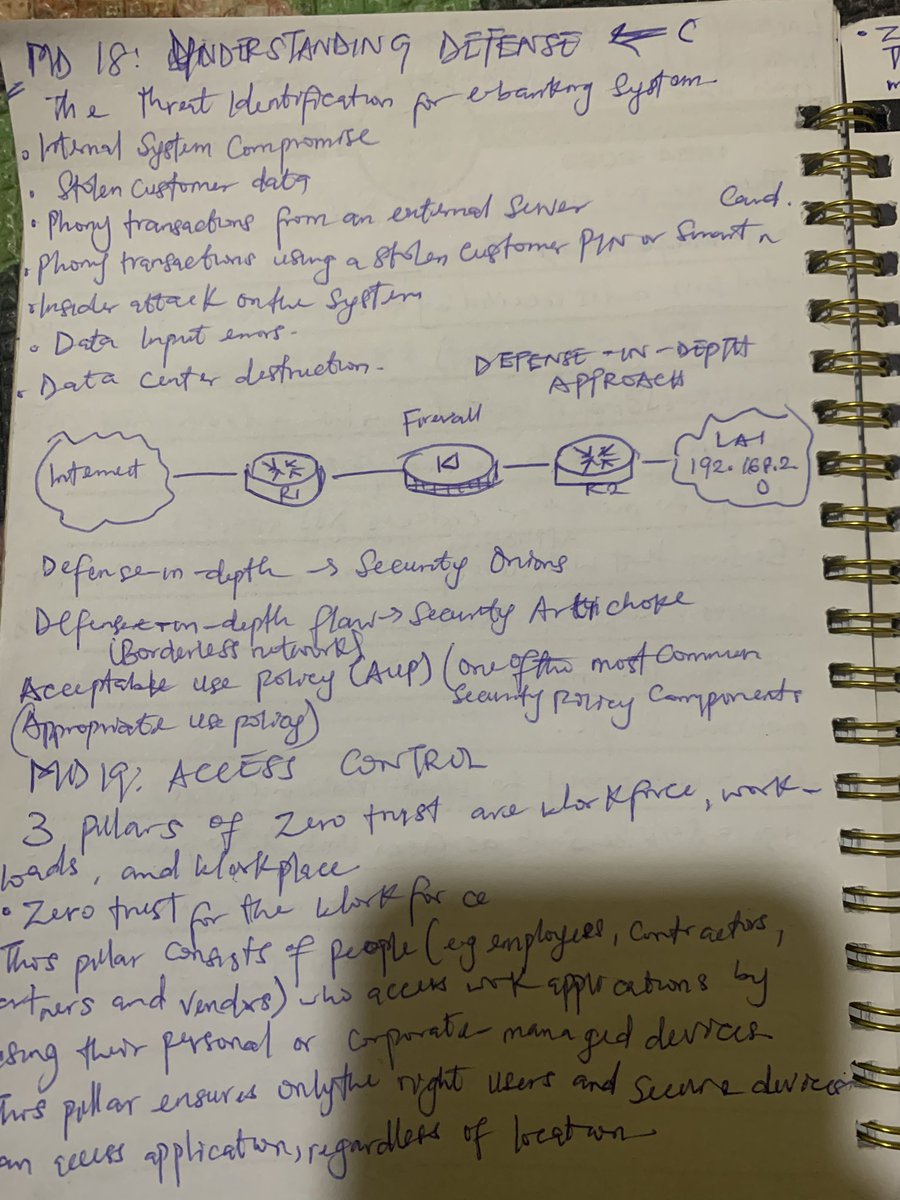 MD 18: UNDERSTANDING DEFENSE ← C
The threat Identification for e-banking System
• Internal System Compromise
• Stolen Customer data
• Phony transactions from an external Server
• Phony transactions using a stolen Customer PIN or Smart Card.
• Insider attack on the System
• Data Input errors.
• Data Center destruction.
DEFENSE-IN-DEPTH
APPROACH
Firewall
Internet
R1
R2
192.168.2.
0
Defense-in-depth → Security Onions
Defense-in-depth flaw → Security Artichoke
(Borderless network)
Acceptable use policy (AUP) (One of the most Common
Security Policy Components
(Appropriate use policy)
MD 19: ACCESS CONTROL
3 pillars of Zero trust are Workforce, work-
loads, and Workplace
• Zero trust for the Workforce
This pillar consists of people (eg employees, contractors,
artners and vendors) who access work applications by
using their personal or corporate-managed devices
This pillar ensures only the right users and secure devices
an access application, regardless of location